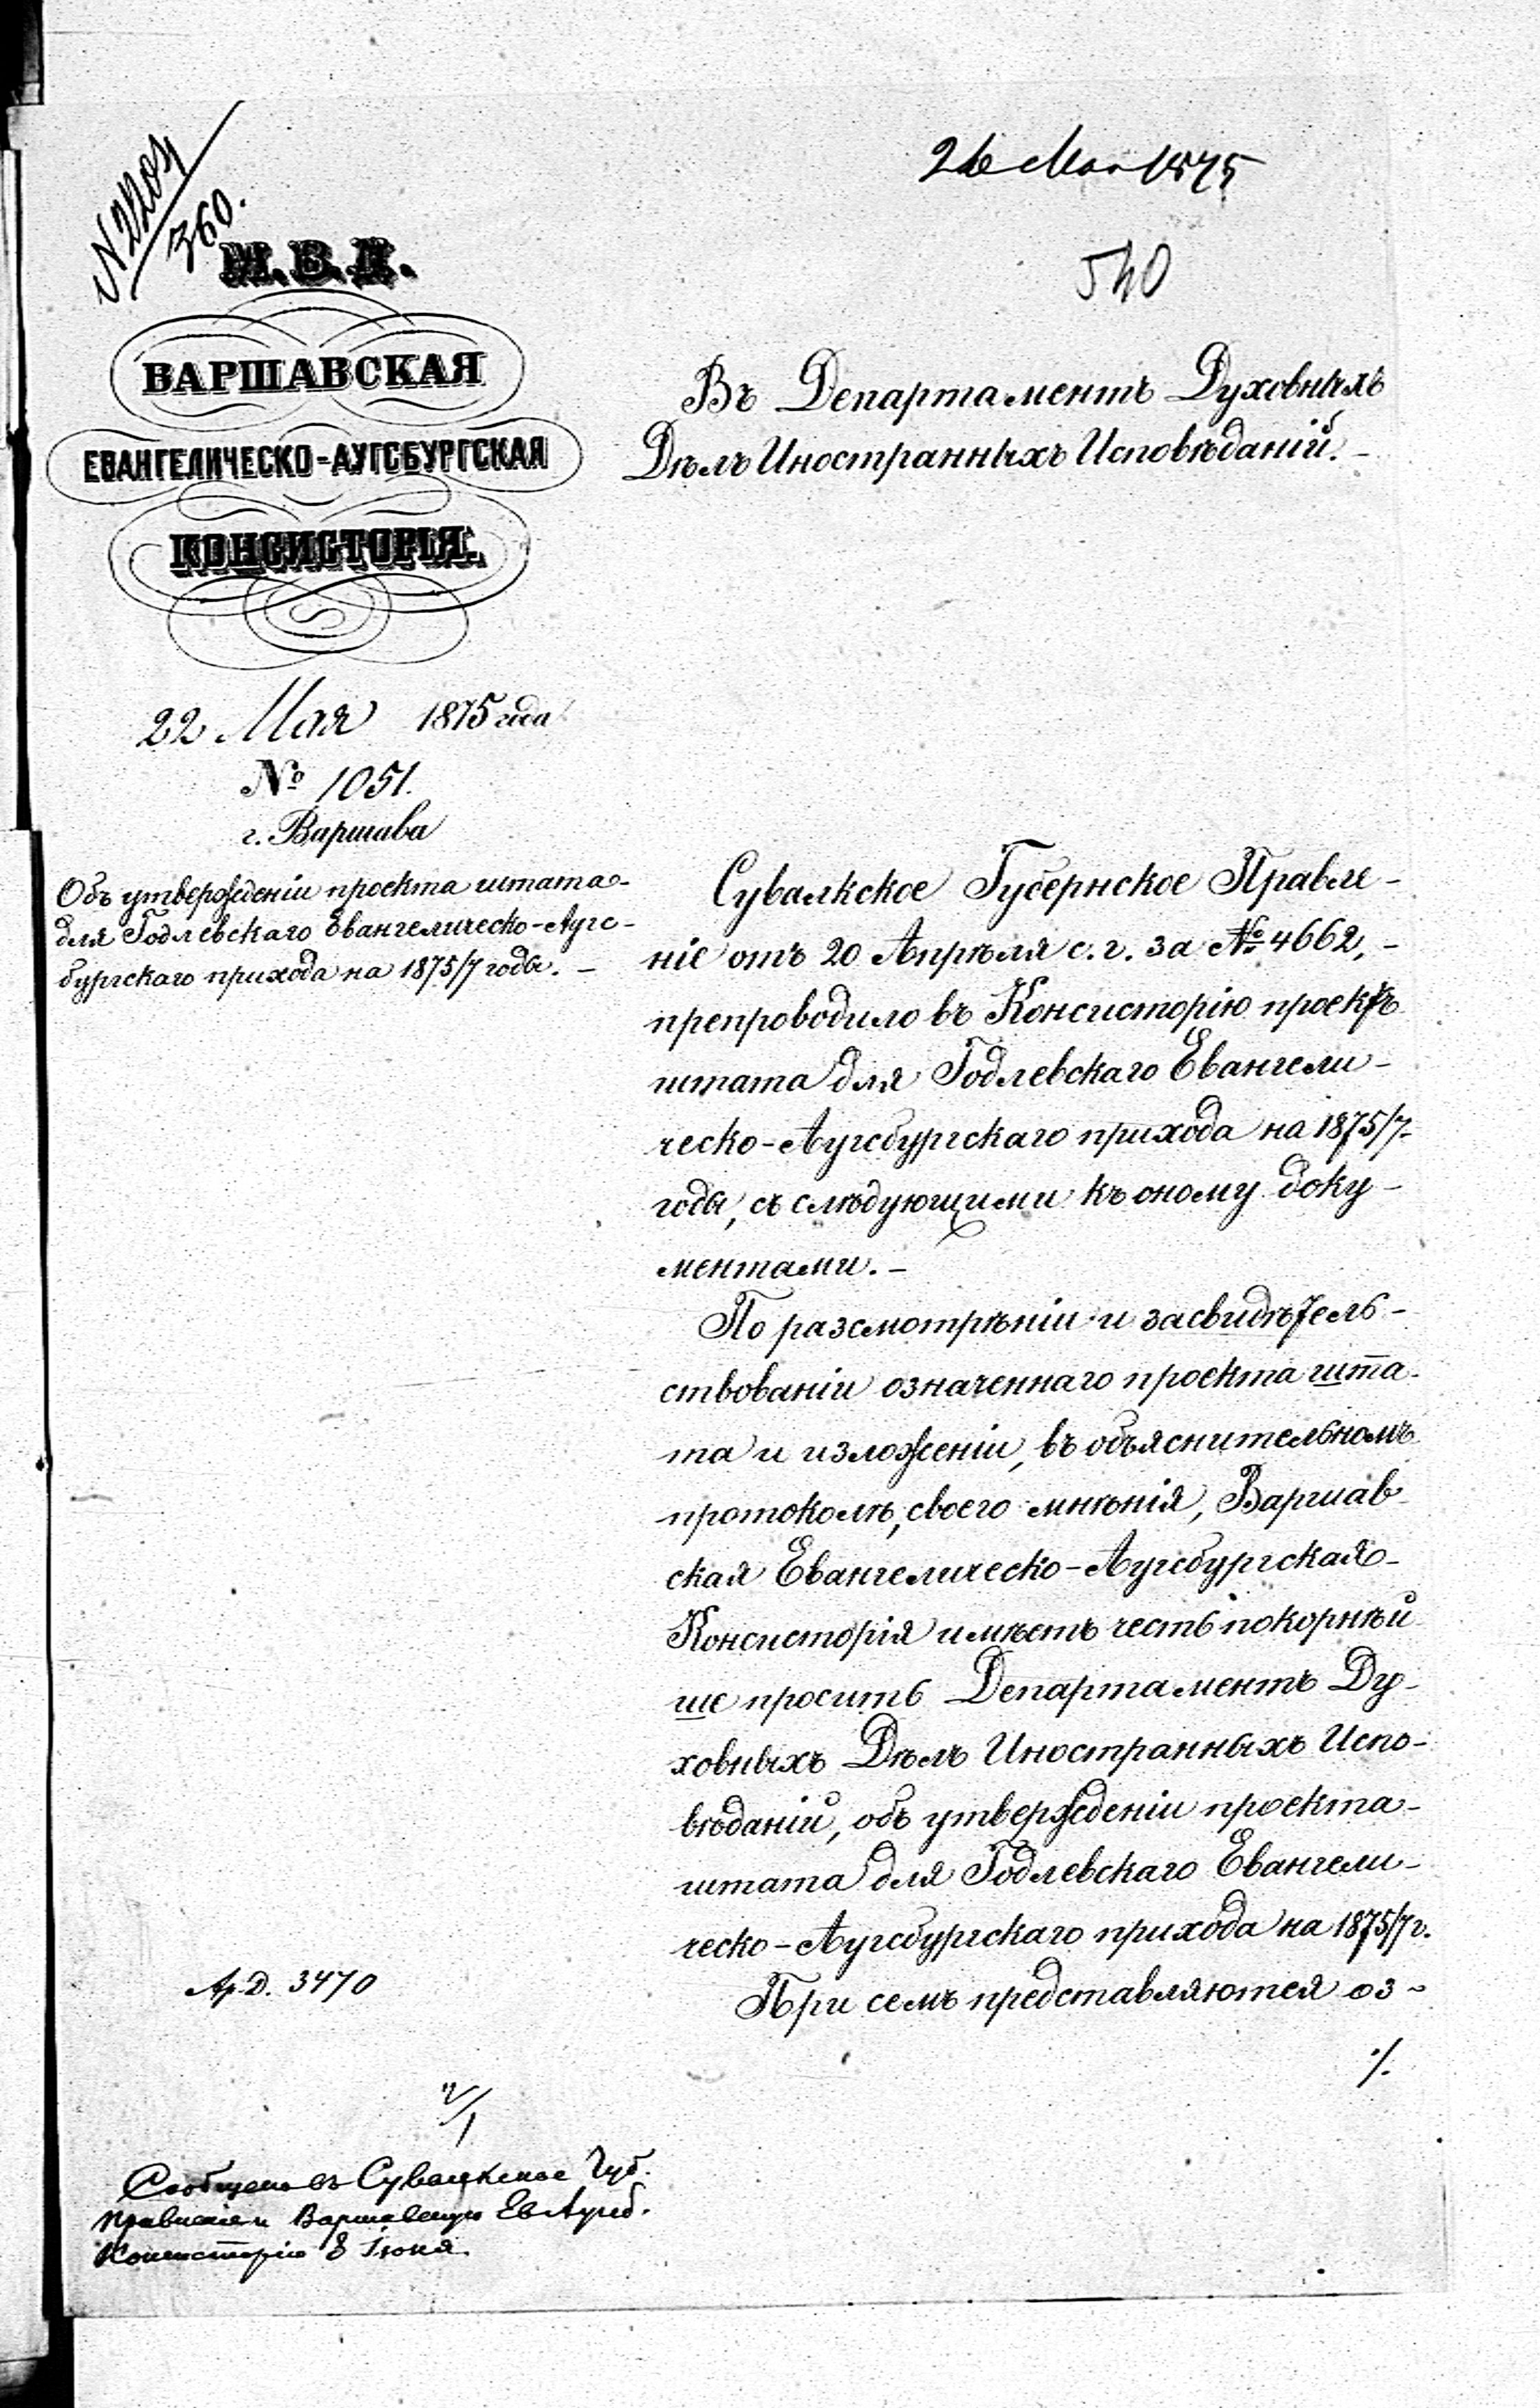 N 2204
360.
М.В.Д.
ВАРШАВСКАЯ
ЕВАНГЕЛИЧЕСКО-АУГСБУРГСКАЯ
КОНСИСТОРІЯ.
22 Мая 1875 года
№ 1051.
г. Варшава
Объ утвержденіи проекта штата
для Годлевскаго Евангелическо-Аугс-
бургскаго прихода на 1875/7 годы. –
26 Мая 1875
540
Въ Департаментъ Духовныхъ
Дѣлъ Иностранныхъ Исповѣданій. –
Сувалкское Губернское Правле-
ніе отъ 20 Апрѣля с. г. за № 4662, –
препроводило въ Консисторію проектъ
штата для Годлевскаго Евангели-
ческо-Аугсбургскаго прихода на 1875/7
годы, съ слѣдующими къ оному доку-
ментами. –
По разсмотрѣніи и засвидѣтель-
ствованіи означеннаго проекта шта-
та и изложеніи, въ объяснительномъ
протоколѣ, своего мнѣнія, Варшав-
ская Евангелическо-Аугсбургская
Консисторія имѣетъ честь покорнѣй
ше просить Департаментъ Ду-
ховныхъ Дѣлъ Иностранныхъ Испо-
вѣданій, объ утвержденіи проекта
штата для Годлевскаго Евангели-
ческо-Аугсбургскаго прихода на 1875/7 г.
При семъ представляются оз-
./.
Ар. Д. 3470
Сообщено въ Сувалкское Губ.
Правленіе и Варшавскую Ев Аугсб.
Консисторію 8 Іюня